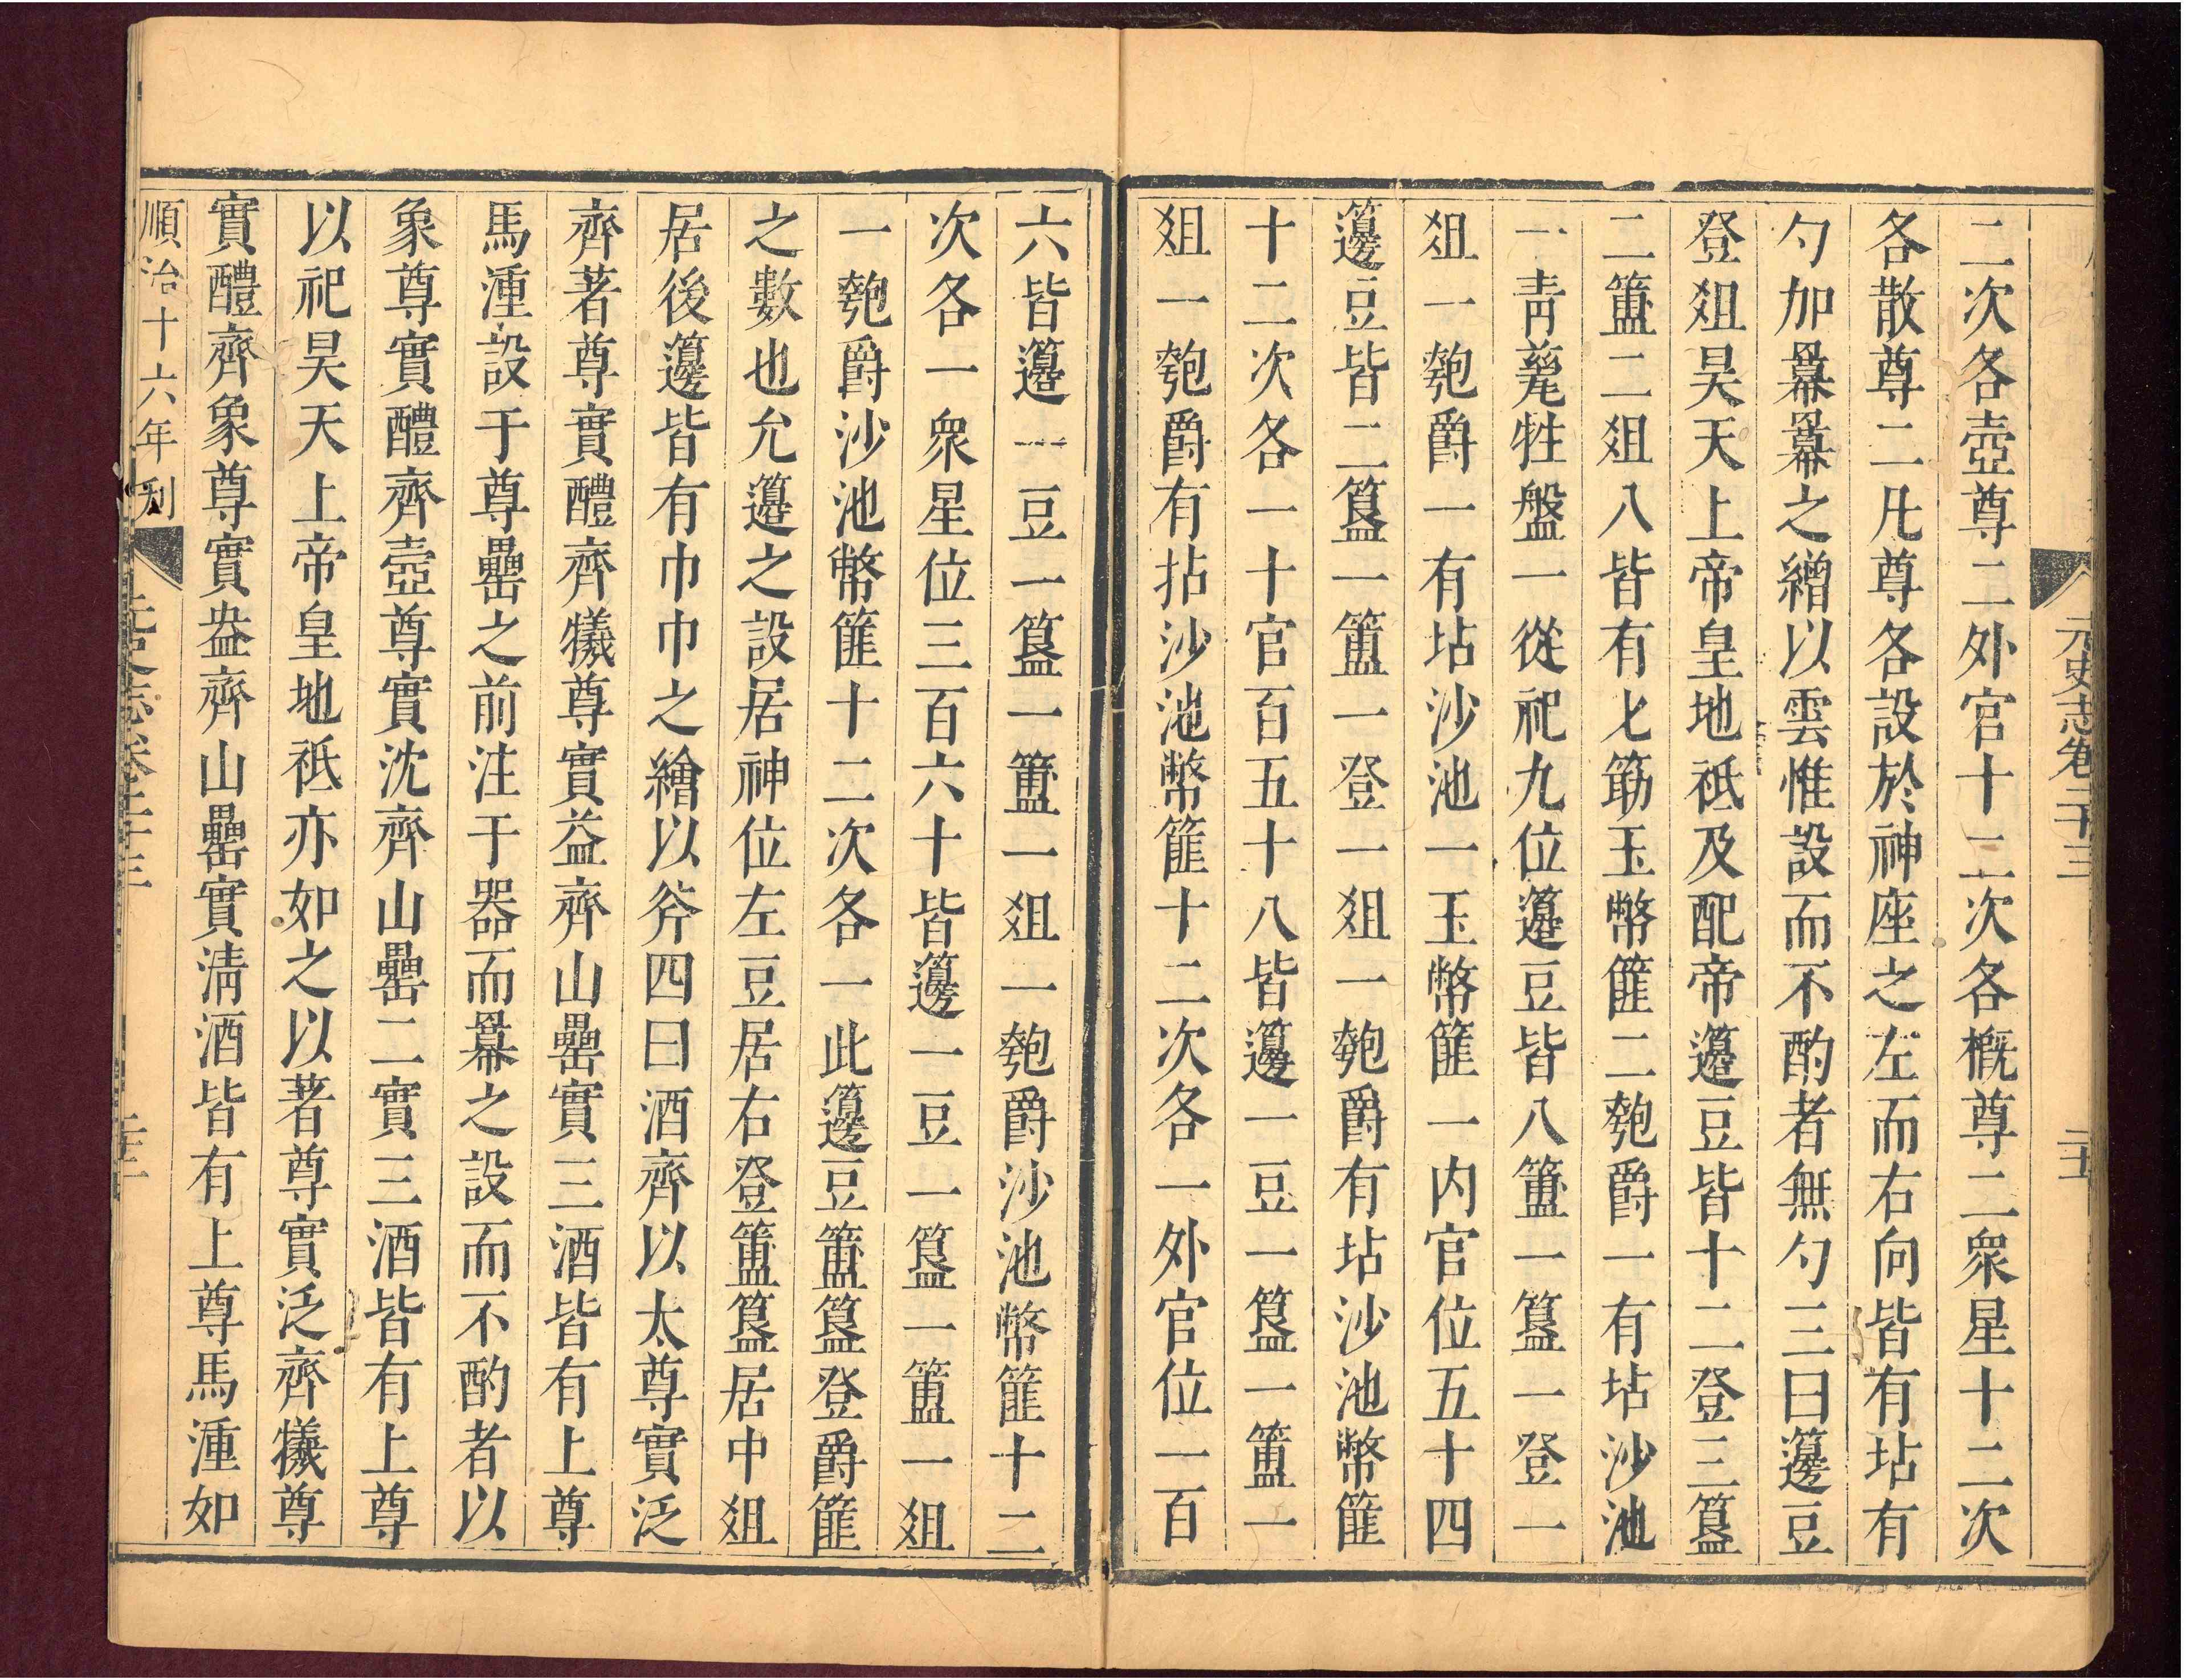 元史志卷二十三
二十
二次各壺尊二外官十二次各概尊二衆星十二次
各散尊二凡尊各設於神座之左而右向皆有坫有
勺加羃羃之繒以雲惟設而不酌者無勺三曰籩豆
登俎昊天上帝皇地祗及配帝籩豆皆十二登三簋
二簠二俎八皆有匕筯玉幣篚二匏爵一有坫沙池
一靑甆牲盤一從祀九位籩豆皆八簠一簋一登一
俎一匏爵一有坫沙池一玉幣篚一内官位五十四
籩豆皆二簋一簠一登一俎一匏爵有坫沙池幣篚
十二次各一十官百五十八皆籩一豆一簋一簠一
俎一匏爵有拈沙池幣篚十二次各一外官位一百
六皆籩一豆一簋一簠一俎一匏爵沙池幣篚十二
次各一衆星位三百六十皆籩一豆一簋一簠一俎
一匏爵沙池幣篚十二次各一此籩豆簠簋登爵篚
之數也允籩之設居神位左豆居右登簠簋居中俎
居後籩皆有巾巾之繪以斧四曰酒齊以太尊實泛
齊著尊實醴齊犧尊實益齊山罍實三酒皆有上尊
馬湩設于尊罍之前注于器而羃之設而不酌者以
象尊實醴齊壺尊實沈齊山罍二實三酒皆有上尊
以祀昊天上帝皇地祗亦如之以著尊實泛齊犧尊
實醴齊象尊實盎齊山罍實淸酒皆有上尊馬湩如
順治十六年刋